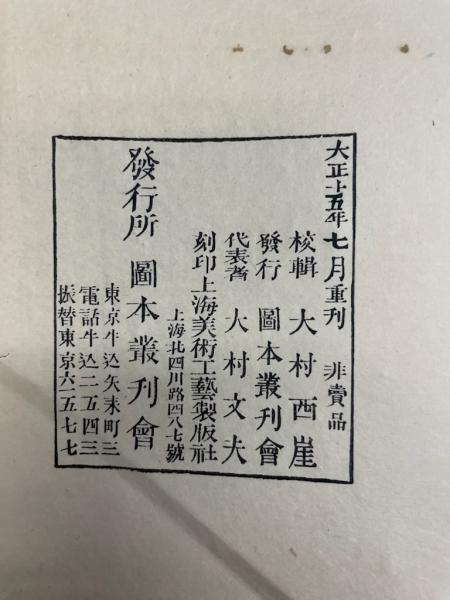 大正十五年七月重刊　非賣品
校輯　大村西崖
發行　圖本叢刊會
代表者　大村文夫
刻印　上海美術工藝製版社
上海北四川路四八七號
發行所　圖本叢刊會
東京牛込矢来町三
電話牛込二五四三
振替東京六二五七七